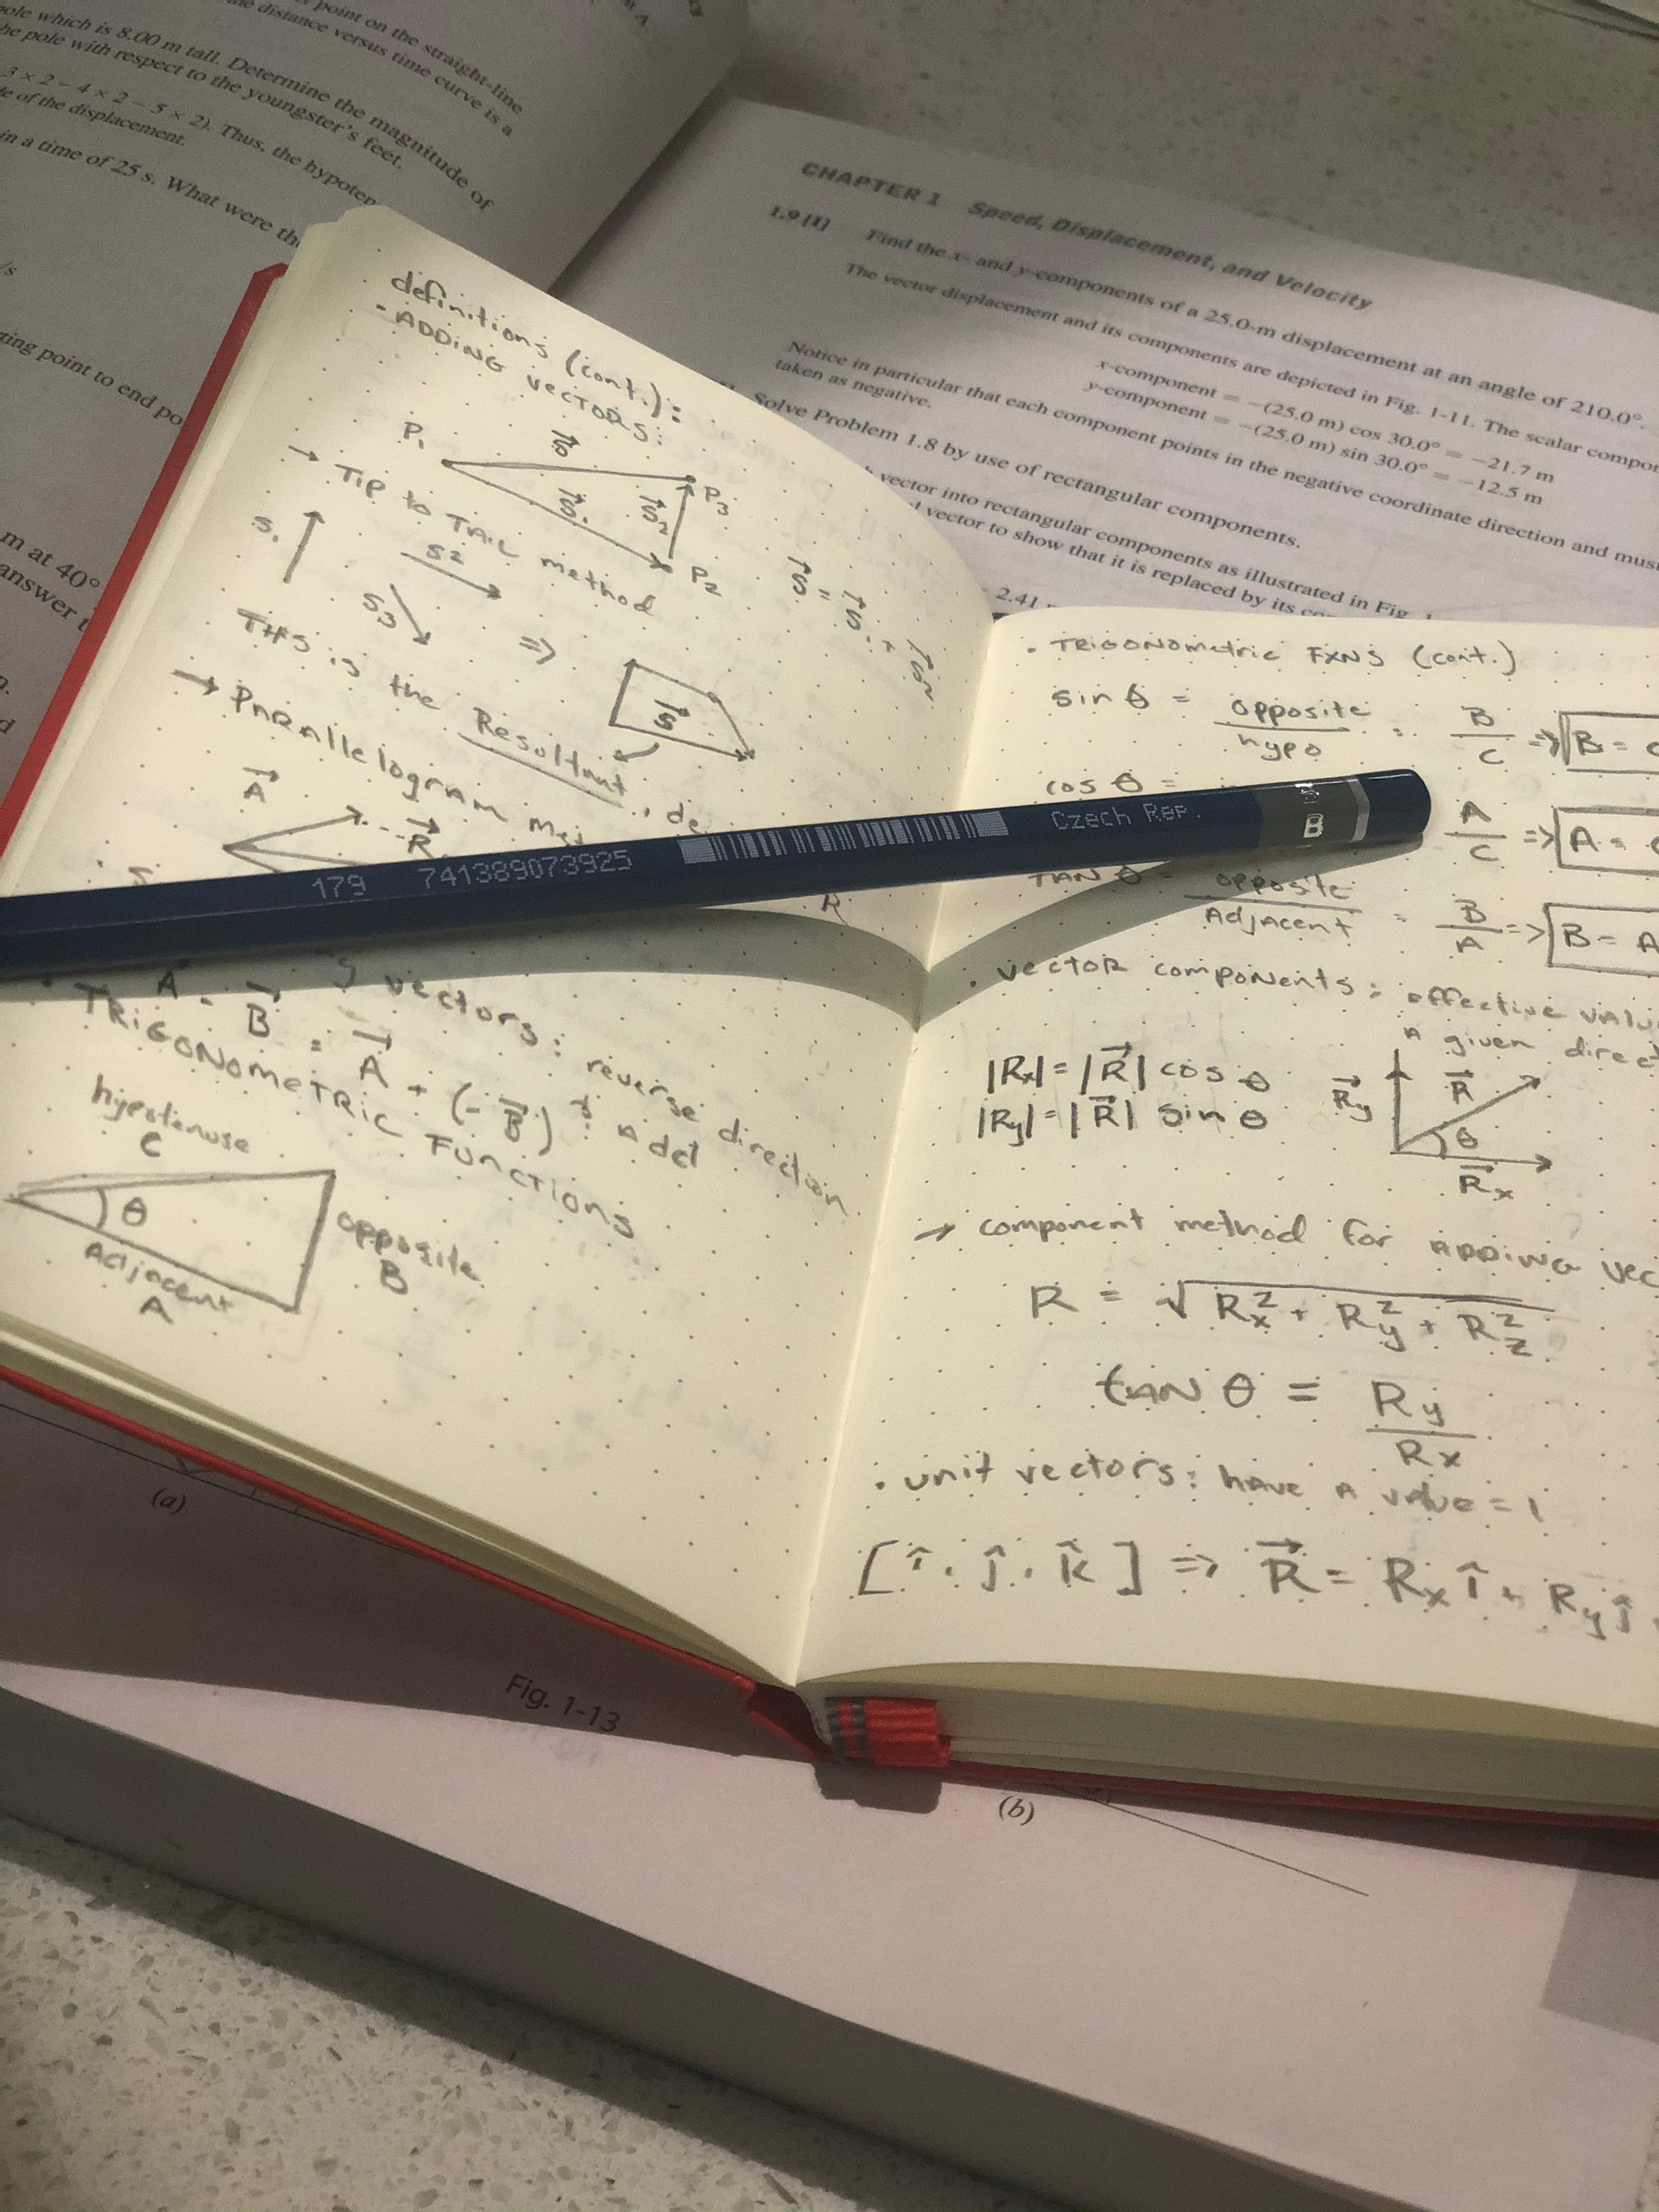 point on the straight-line
distance versus time curve is a
pole which is 8.00 m tall. Determine the magnitude of
the pole with respect to the youngster's feet.
3 × 2 − 4 × 2 − 5 × 2). Thus, the
of the displacement.
in a time of 25 s. What were
/s
point to end
m at 40°
answer
CHAPTER 1 Speed, Displacement, and Velocity
1.9 [I] Find the x- and y-components of a 25.0-m displacement at an angle of 210.0°.
The vector displacement and its components are depicted in Fig. 1-11. The scalar
x-component = −(25.0 m) cos 30.0° = −21.7 m
y-component = −(25.0 m) sin 30.0° = −12.5 m
Notice in particular that each component points in the negative coordinate direction and must
taken as negative.
Solve Problem 1.8 by use of rectangular components.
vector into rectangular components as illustrated in Fig.
vector to show that it is replaced by its
2.41
definitions (cont.):
- ADDING VECTORS:
P₁ S⃗ P₃
S⃗₁ S⃗₂
P₂
S⃗ = S⃗₁ +
→ Tip to TAIL method
S₁ S2 S3 ⇒ S⃗
THIS is the Resultant,
→ Parallelogram
A⃗ R⃗
R
vectors: reverse direction
A⃗ - B⃗ = A⃗ + (-B⃗)
• TRIGONOMETRIC FUNCTIONS
hypotenuse
C
θ
opposite
B
Adjacent
A
179 741389073925 Czech Rep. B
• TRIGONOMETRIC FXNS (cont.)
sin θ = opposite / hypo = B / C ⇒ B =
cos θ = A / C ⇒ A =
TAN θ = opposite / Adjacent = B / A => B = A
• vector components: effective
A given
|Rx| = |R⃗| cos θ
|Ry| = |R⃗| sin θ
R⃗y R⃗ θ R⃗x
→ component method for ADDING
R = √ Rx² + Ry² + Rz²
tAN θ = Ry / Rx
• unit vectors: have A value = 1
[ î, ĵ, k̂ ] ⇒ R⃗ = Rx î + Ry ĵ
(a)
Fig. 1-13
(b)